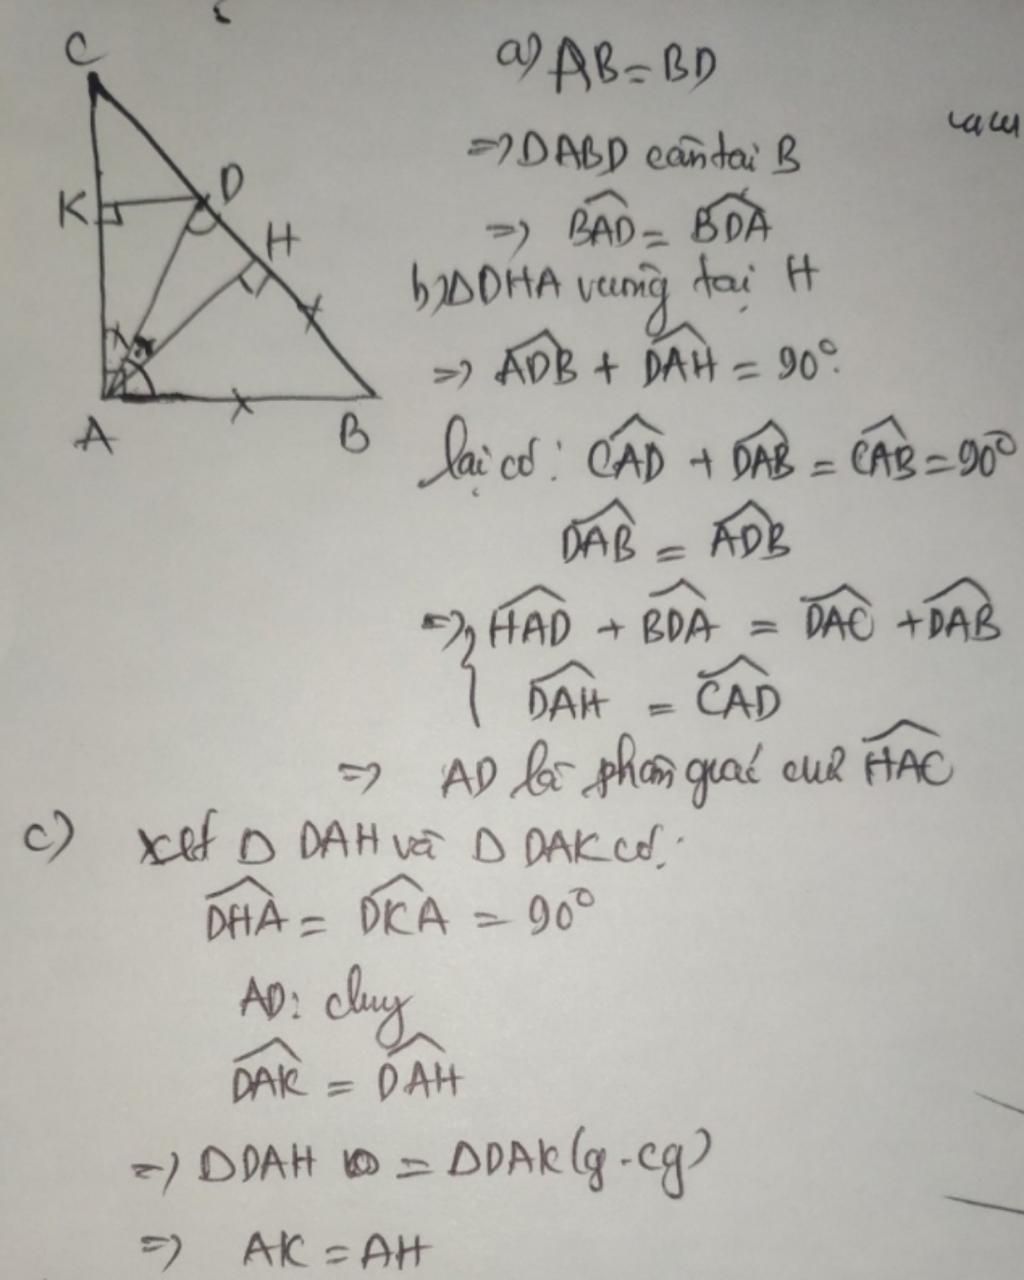 C
K
D
H
A
B
a) AB = BD
=> ΔABD cân tại B
=> \widehat{BAD} = \widehat{BDA}
b) ΔDHA vuông tại H
=> \widehat{ADB} + \widehat{DAH} = 90°.
lại có: \widehat{CAD} + \widehat{DAB} = \widehat{CAB} = 90°
\widehat{DAB} = \widehat{ADB}
=> { \widehat{HAD} + \widehat{BDA} = \widehat{DAC} + \widehat{DAB}
\widehat{DAH} = \widehat{CAD}
=> AD là phân giác của \widehat{HAC}
c) xét Δ DAH và Δ DAK có:
\widehat{DHA} = \widehat{DKA} = 90°
AD: chung
\widehat{DAK} = \widehat{DAH}
=> ΔDAH = ΔDAK (g.cg)
=> AK = AH